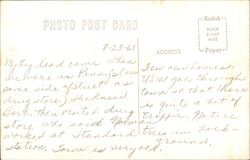 PHOTO POST CARD
Kodak
PLACE
STAMP
HERE
Paper
8-23-61
ADDRESS
My big lead came when
we were in Penney's (on
same side of street as
drug store)
then visited drug
store who said Norman
worked at Standard
station. Town is very old.
Few new homes.
goes through
town so that there
is quite a bit of
traffic. Notice
trees in back-
ground.